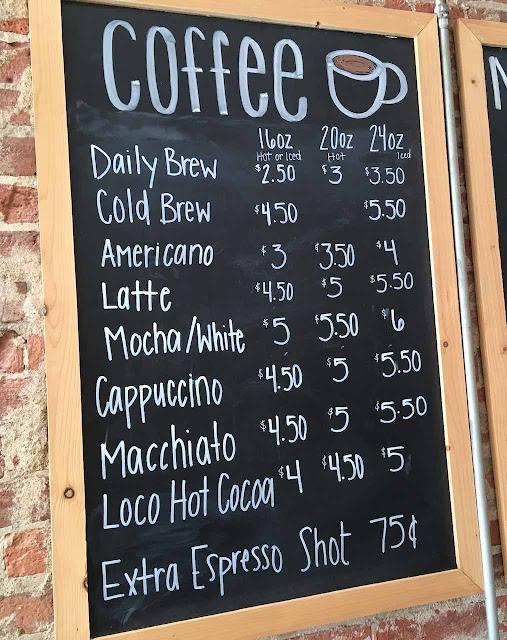 Coffee
16oz 20oz 24oz
Hot or Iced Hot Iced
Daily Brew $2.50 $3 $3.50
Cold Brew $4.50 $5.50
Americano $3 $3.50 $4
Latte $4.50 $5 $5.50
Mocha/White $5 $5.50 $6
Cappuccino $4.50 $5 $5.50
Macchiato $4.50 $5 $5.50
Loco Hot Cocoa $4 $4.50 $5
Extra Espresso Shot 75¢